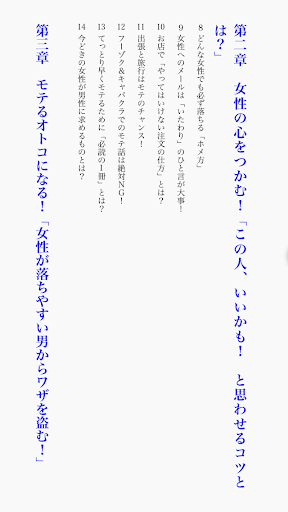 第二章　女性の心をつかむ！「この人、いいかも！　と思わせるコツと
は？」
8 どんな女性でも必ず落ちる「ホメ方」
9 女性へのメールは「いたわり」のひと言が大事！
10 お店で「やってはいけない注文の仕方」とは？
11 出張と旅行はモテのチャンス！
12 フーゾク＆キャバクラでのモテ話は絶対ＮＧ！
13 てっとり早くモテるために「必読の１冊」とは？
14 今どきの女性が男性に求めるものとは？
第三章　モテるオトコになる！「女性が落ちやすい男からワザを盗む！」